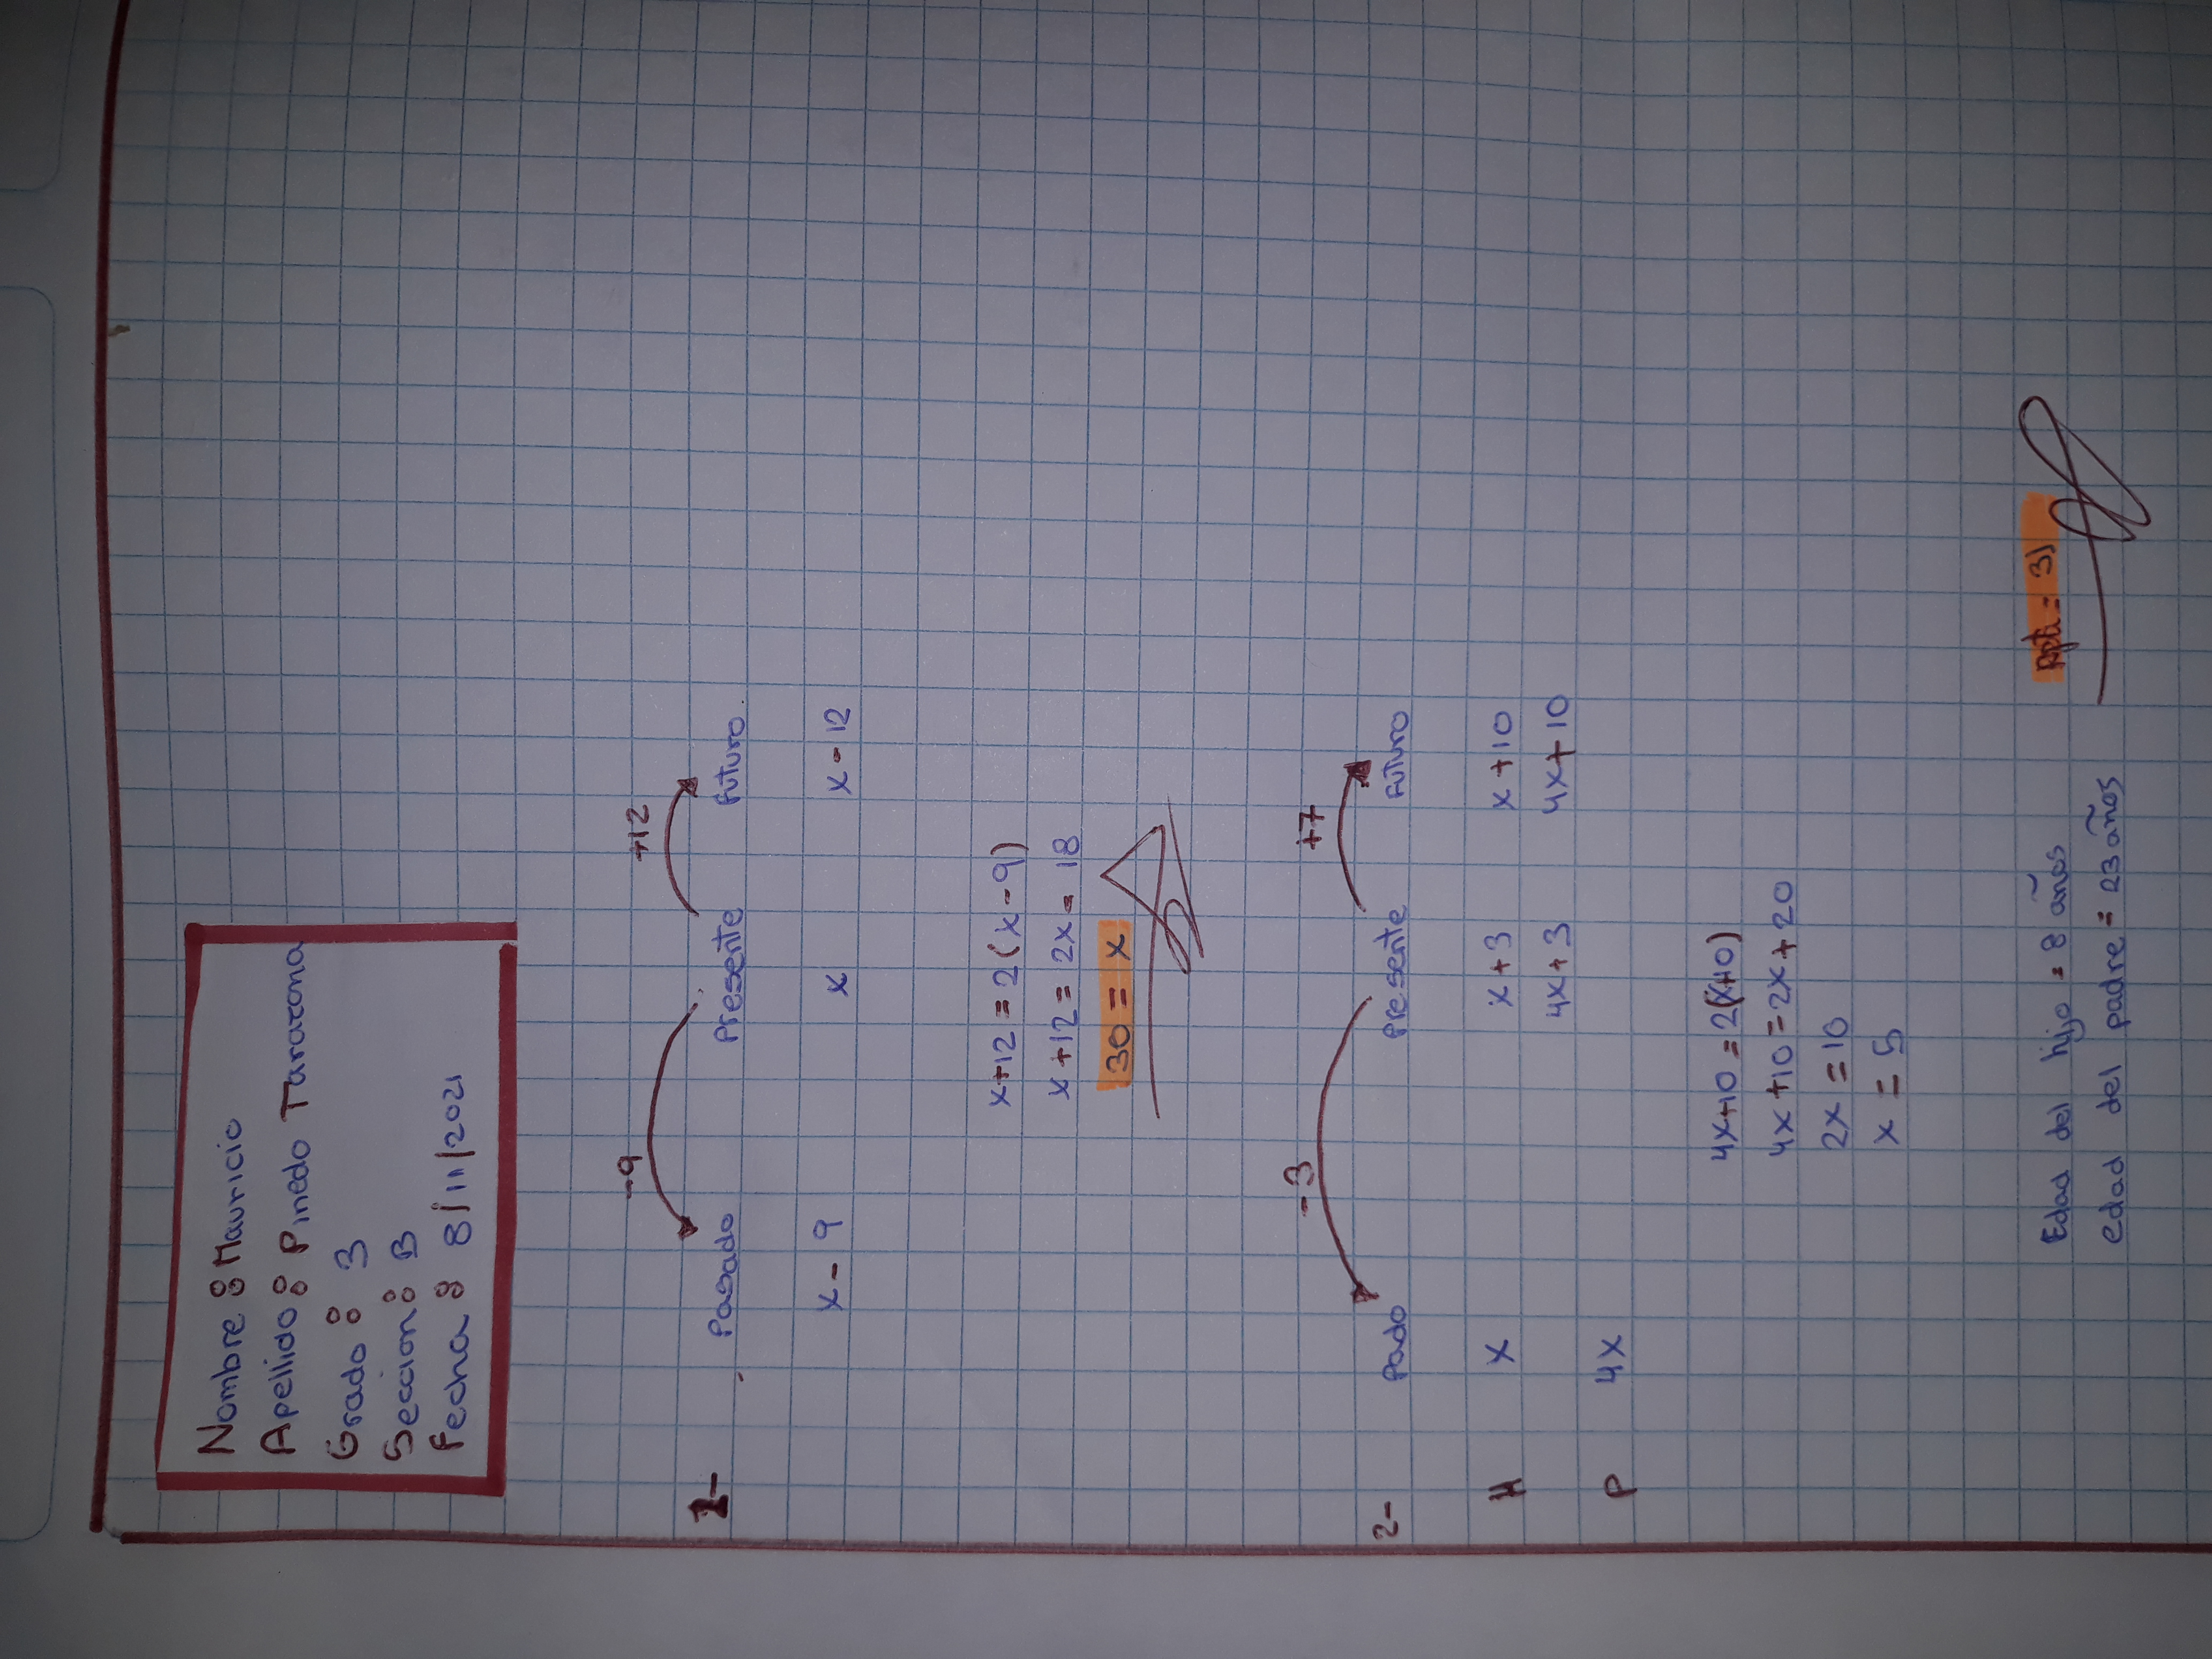 Nombre : Mauricio
Apellido : Pinedo Tarazona
Grado : 3
Seccion : B
Fecha : 8/11/2021
-9 +12
1- Pasado Presente Futuro
x - 9 x x - 12
x+12 = 2(x-9)
x+12 = 2x - 18
30 = x
-3 +7
2- Pado Presente Futuro
H x x+3 x+10
4x+3 4x+10
P 4x
4x+10 = 2(x+10)
4x+10 = 2x+20
2x = 10
x = 5
Edad del hijo = 8 años Rpta = 31
edad del padre = 23 años